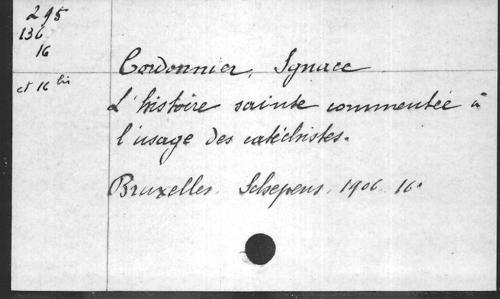 295
136
16
et 16 bis
Cordonnier, Ignace
L'histoire sainte commentée à
l'usage des catéchistes.
Bruxelles. Schepens. 1906. 16°